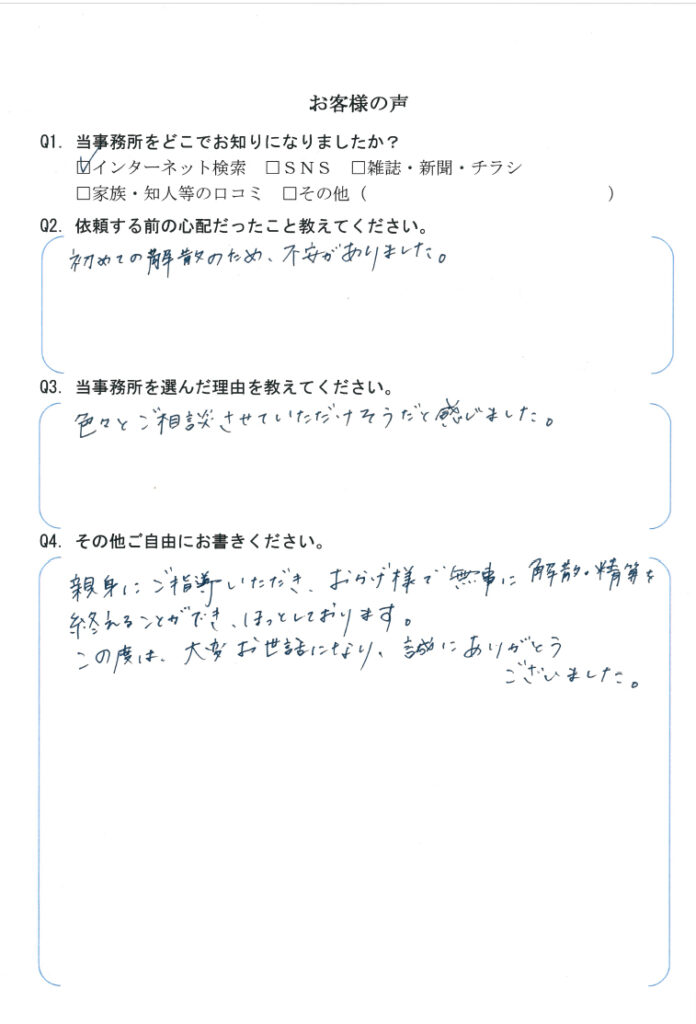 お客様の声
Q1. 当事務所をどこでお知りになりましたか？
☑インターネット検索　□ＳＮＳ　□雑誌・新聞・チラシ
□家族・知人等の口コミ　□その他（　　　　　　　　　　　　　　　）
Q2. 依頼する前の心配だったこと教えてください。
初めての解散のため、不安がありました。
Q3. 当事務所を選んだ理由を教えてください。
色々とご相談させていただけそうだと感じました。
Q4. その他ご自由にお書きください。
親身にご指導いただき、おかげ様で無事に解散・精算を
終えることができ、ほっとしております。
この度は、大変お世話になり、誠にありがとう
ございました。